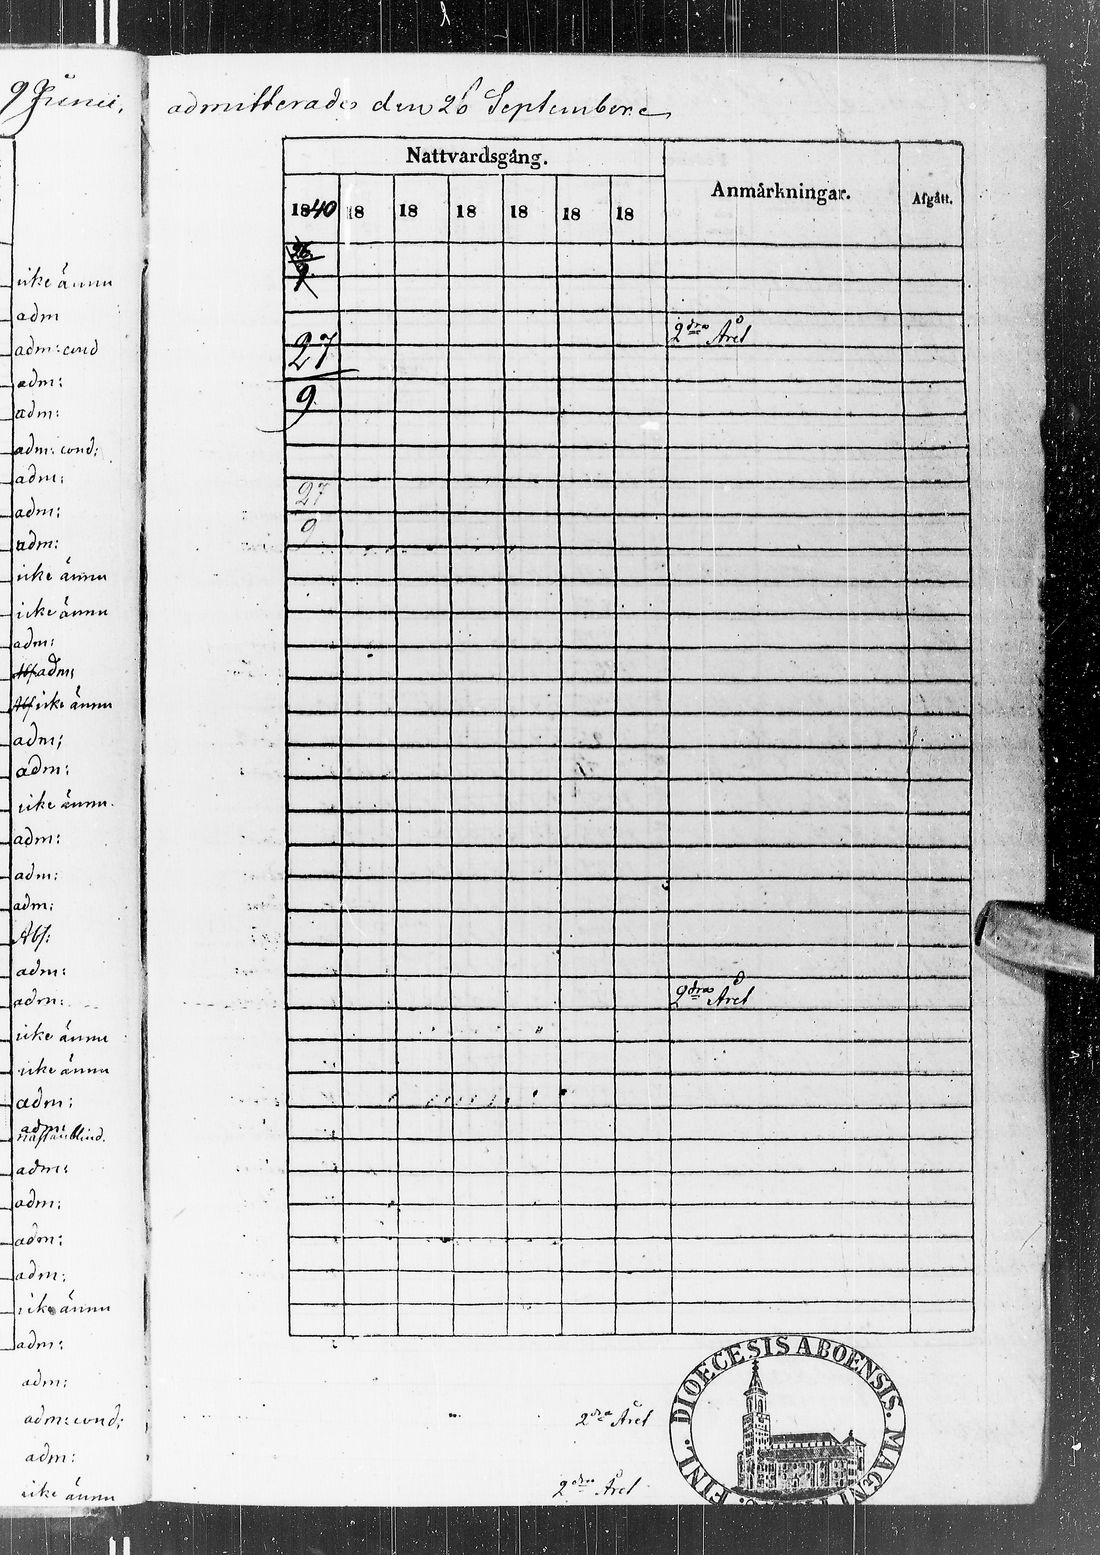 9 Junii,
admitterades den 26 Septembere
Nattvardsgång.
Anmårkningar.
Afgått.
1840 18 18 18 18 18 18
26
9
icke ännu
adm
2dra Året
adm: cond
27
adm:
9
adm:
adm: cond:
adm:
27
adm:
9
adm:
icke ännu
icke ännu
adm:
Abf adm:
Abf icke ännu
adm;
adm:
icke ännu.
adm:
adm:
adm:
Abf:
adm:
2dra Året
adm:
icke ännu
icke ännu
adm:
adm:
adm:
adm:
adm:
adm:
icke ännu
adm:
adm:
adm: cond:
2dra Året
adm:
icke ännu
2dra Året
FINL. DIOECESIS ABOENSIS. MAGNI